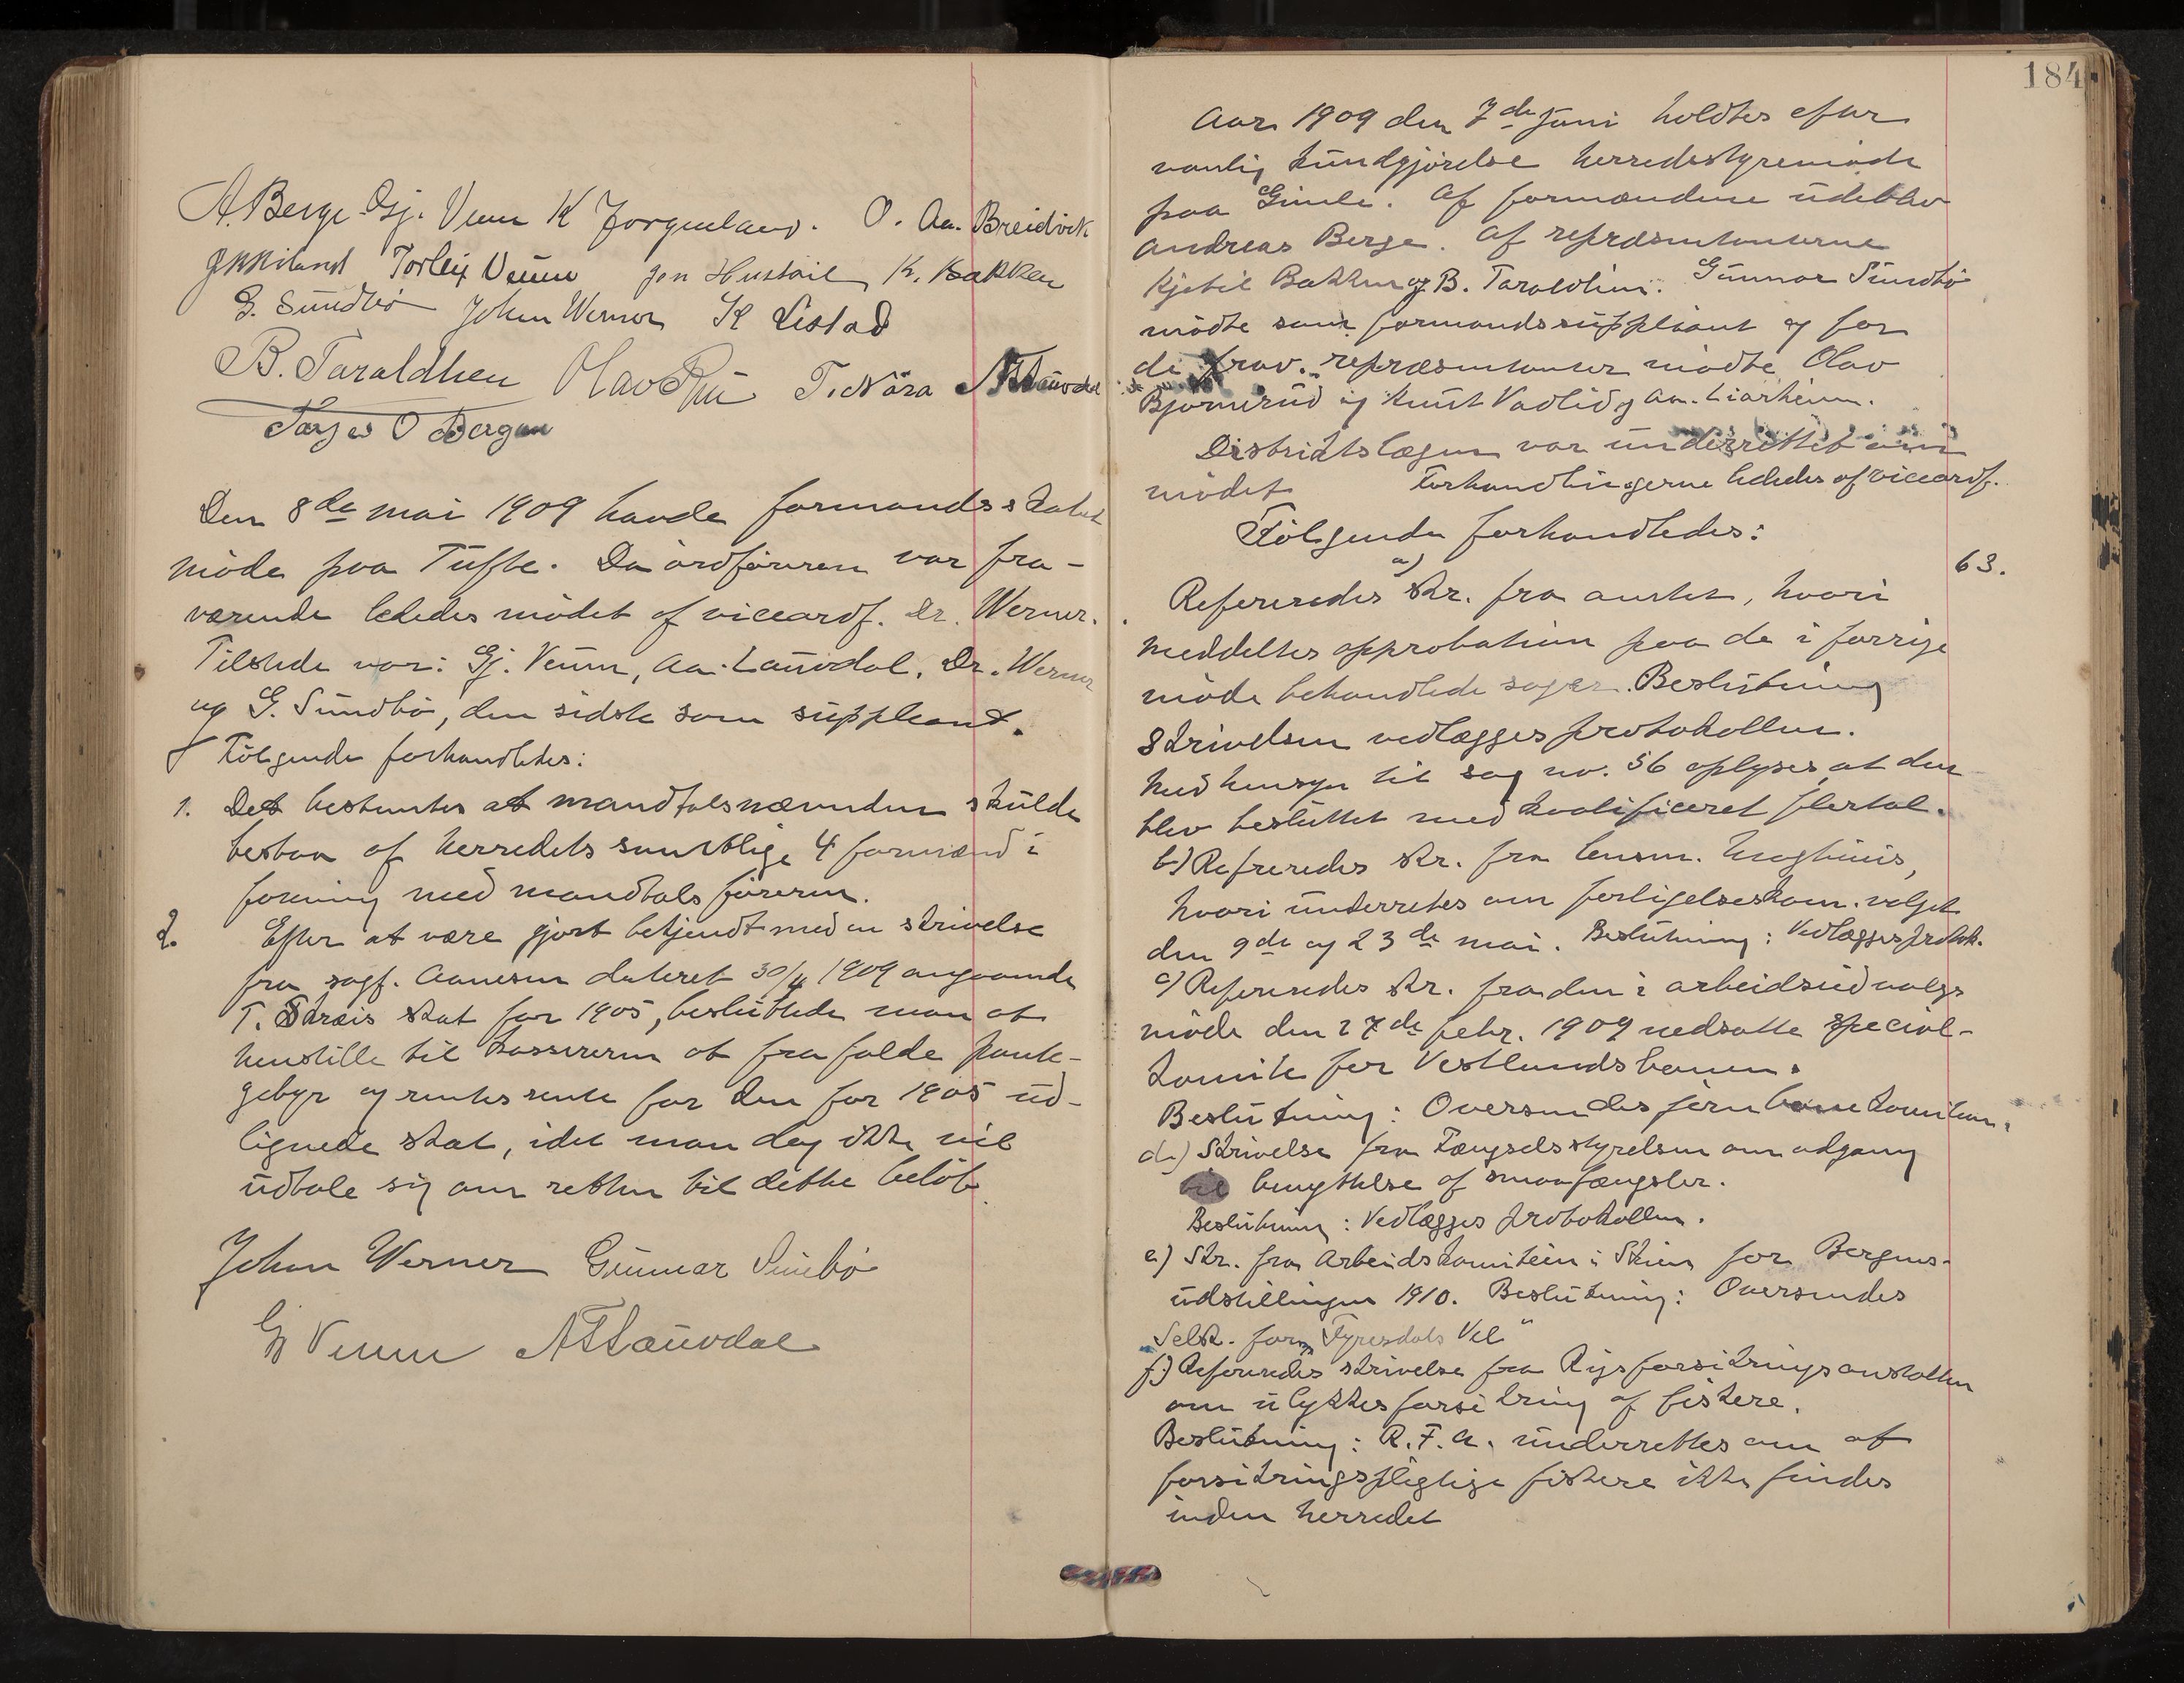 A. Berge Gj. Veum K Jorgenland. O. Aa. Breidvik
Torleiv Veum Jon Hustoil K. Bakken
G. Sundbö Johan Werner K Listad
B. Taraldlien Olav T. Nära A T Lauvdal
Tarjei O Bergan
Den 8de mai 1909 havde formandsskabet
möde paa Tufte. Da ordföreren var fra-
værende lededes mödet af viceordf. Dr. Werner.
Tilstede var: Gj. Veum, Aa. Lauvdal, Dr. Werner
og G. Sundbö, den sidste som suppleant.
Fölgende forhandledes:
1. Det bestemtes at mandtalsnævnden skulde
bestaa af herredets samtlige 4 formænd i
forening med mandtalsföreren.
2. Efter at være gjort bekjendt med en skrivelse
fra sagf. Aanesen dateret 30/4 1909 angaaende
T. skat for 1905, besluttede man at
henstille til kassereren at frafalde pante-
gebyr og rentes rente for den for 1905 ud-
lignede skat, idet man dog ikke vil
udtale sig om retten til dette belöb.
Johan Werner Gunnar Sundbö
Gj Veum A T Lauvdal
184
Aar 1909 den 7de juni holdtes efter
vanlig kundgjörelse herredsstyremöde
paa Gimle. Af formændene udeblev
Andreas Berge. Af repræsentanterne
Kjetil Bakken og B. Taraldlien. Gunnar Sundbö
mödte som formandssuppleant og for
de frav. repræsentanter mödte Olav
Bjornerud og Knut Vadlid og Aa. Liarheim.
Distriktslægen var underrettet om
mödet Forhandlingerne lededes af viceordf.
Fölgende forhandledes:
63.
a)
Refereredes skr. fra amtet, hvori
meddeltes approbation paa de i forrige
möde behandlede sager. Beslutning
Skrivelsen vedlægges protokollen.
Med hensyn til sag no. 56 oplyses at den
blev besluttet med kvalificeret flertal.
b) Refereredes skr. fra lensm.
hvori underrettes om forligelseskom. valget
den 9de og 23de mai. Beslutning: Vedlægges protok.
c) Refereredes skr. fra den i arbeidsudvalgs
möde den 27de febr. 1909 nedsatte special-
komite for Vestlandsbanen.
Beslutning: Oversendes jernbanekomiteen.
d.) Skrivelse fra Fængselsstyrelsen om adgang
til benyttelse af smaafængsler.
Beslutning: Vedlægges protokollen.
e) Skr. fra Arbeidskomiteen i Skien for Bergens-
udstillingen 1910. Beslutning: Oversendes
Selsk. form. „Tyresdals Vel“
f.) Refereredes skrivelse fra Rigsforsikringsanstalten
om ulykkesforsikring af fiskere.
Beslutning: R.F.A. underrettes om at
forsikringspligtige fiskere ikke findes
inden herredet